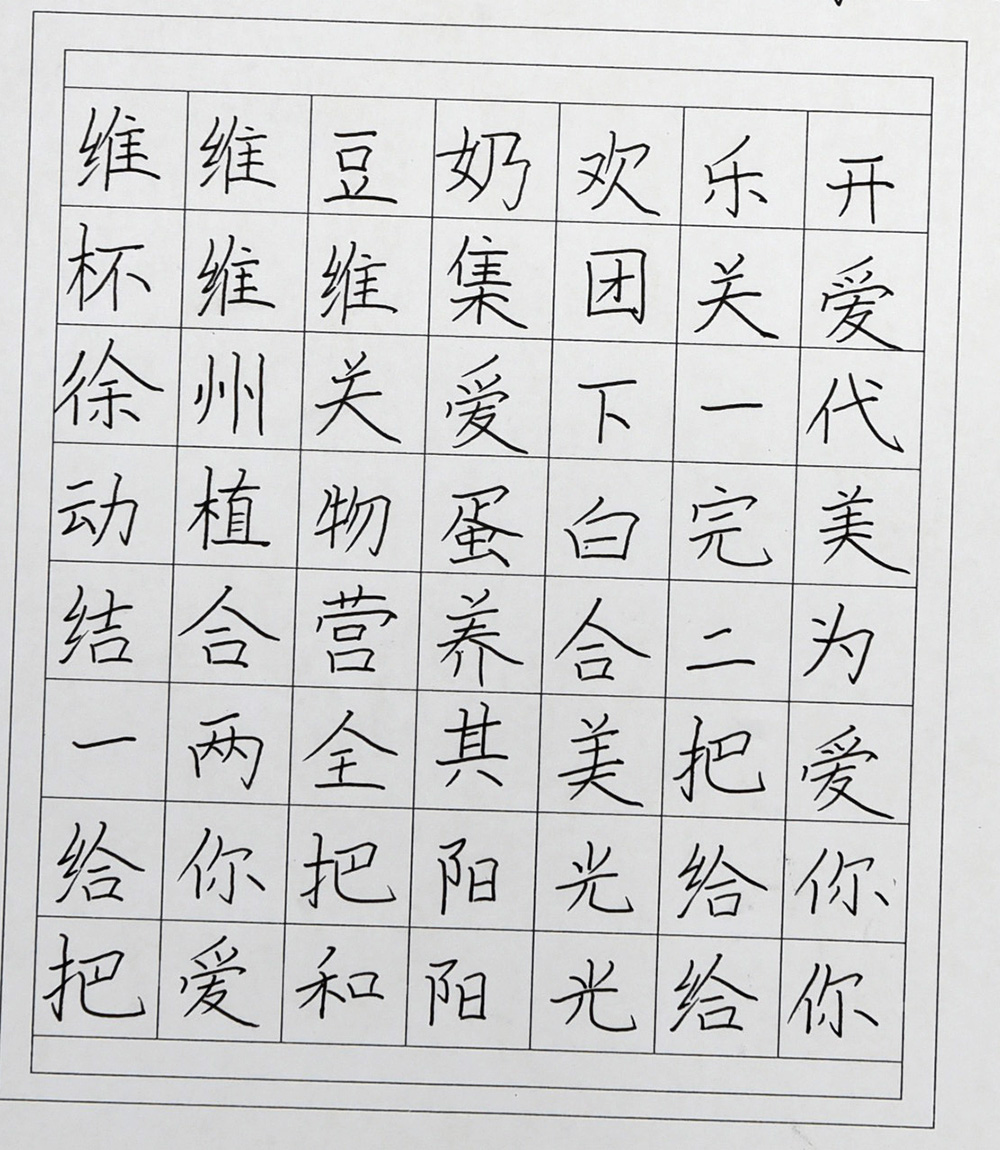 维维豆奶欢乐开
杯维维集团关爱
徐州关爱下一代
动植物蛋白完美
结合营养合二为
一两全其美把爱
给你把阳光给你
把爱和阳光给你